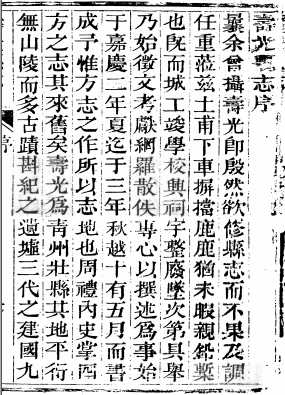 壽光縣志序
曩余曾攝壽光即殷然欲修縣志而不果及調
任重蒞茲土甫下車摒擋鹿鹿猶未暇親鉛槧
也既而城工竣學校興祠宇整廢墜次第具舉
乃始徵文考獻網羅散佚專心以撰述爲事始
于嘉慶二年夏迄于三年秋越十有五月而書
成予惟方志之作所以志地也周禮內史掌四
方之志其來舊矣壽光爲青州壯縣其地平衍
無山陵而多古蹟斟紀之遺墟三代之建國九
序